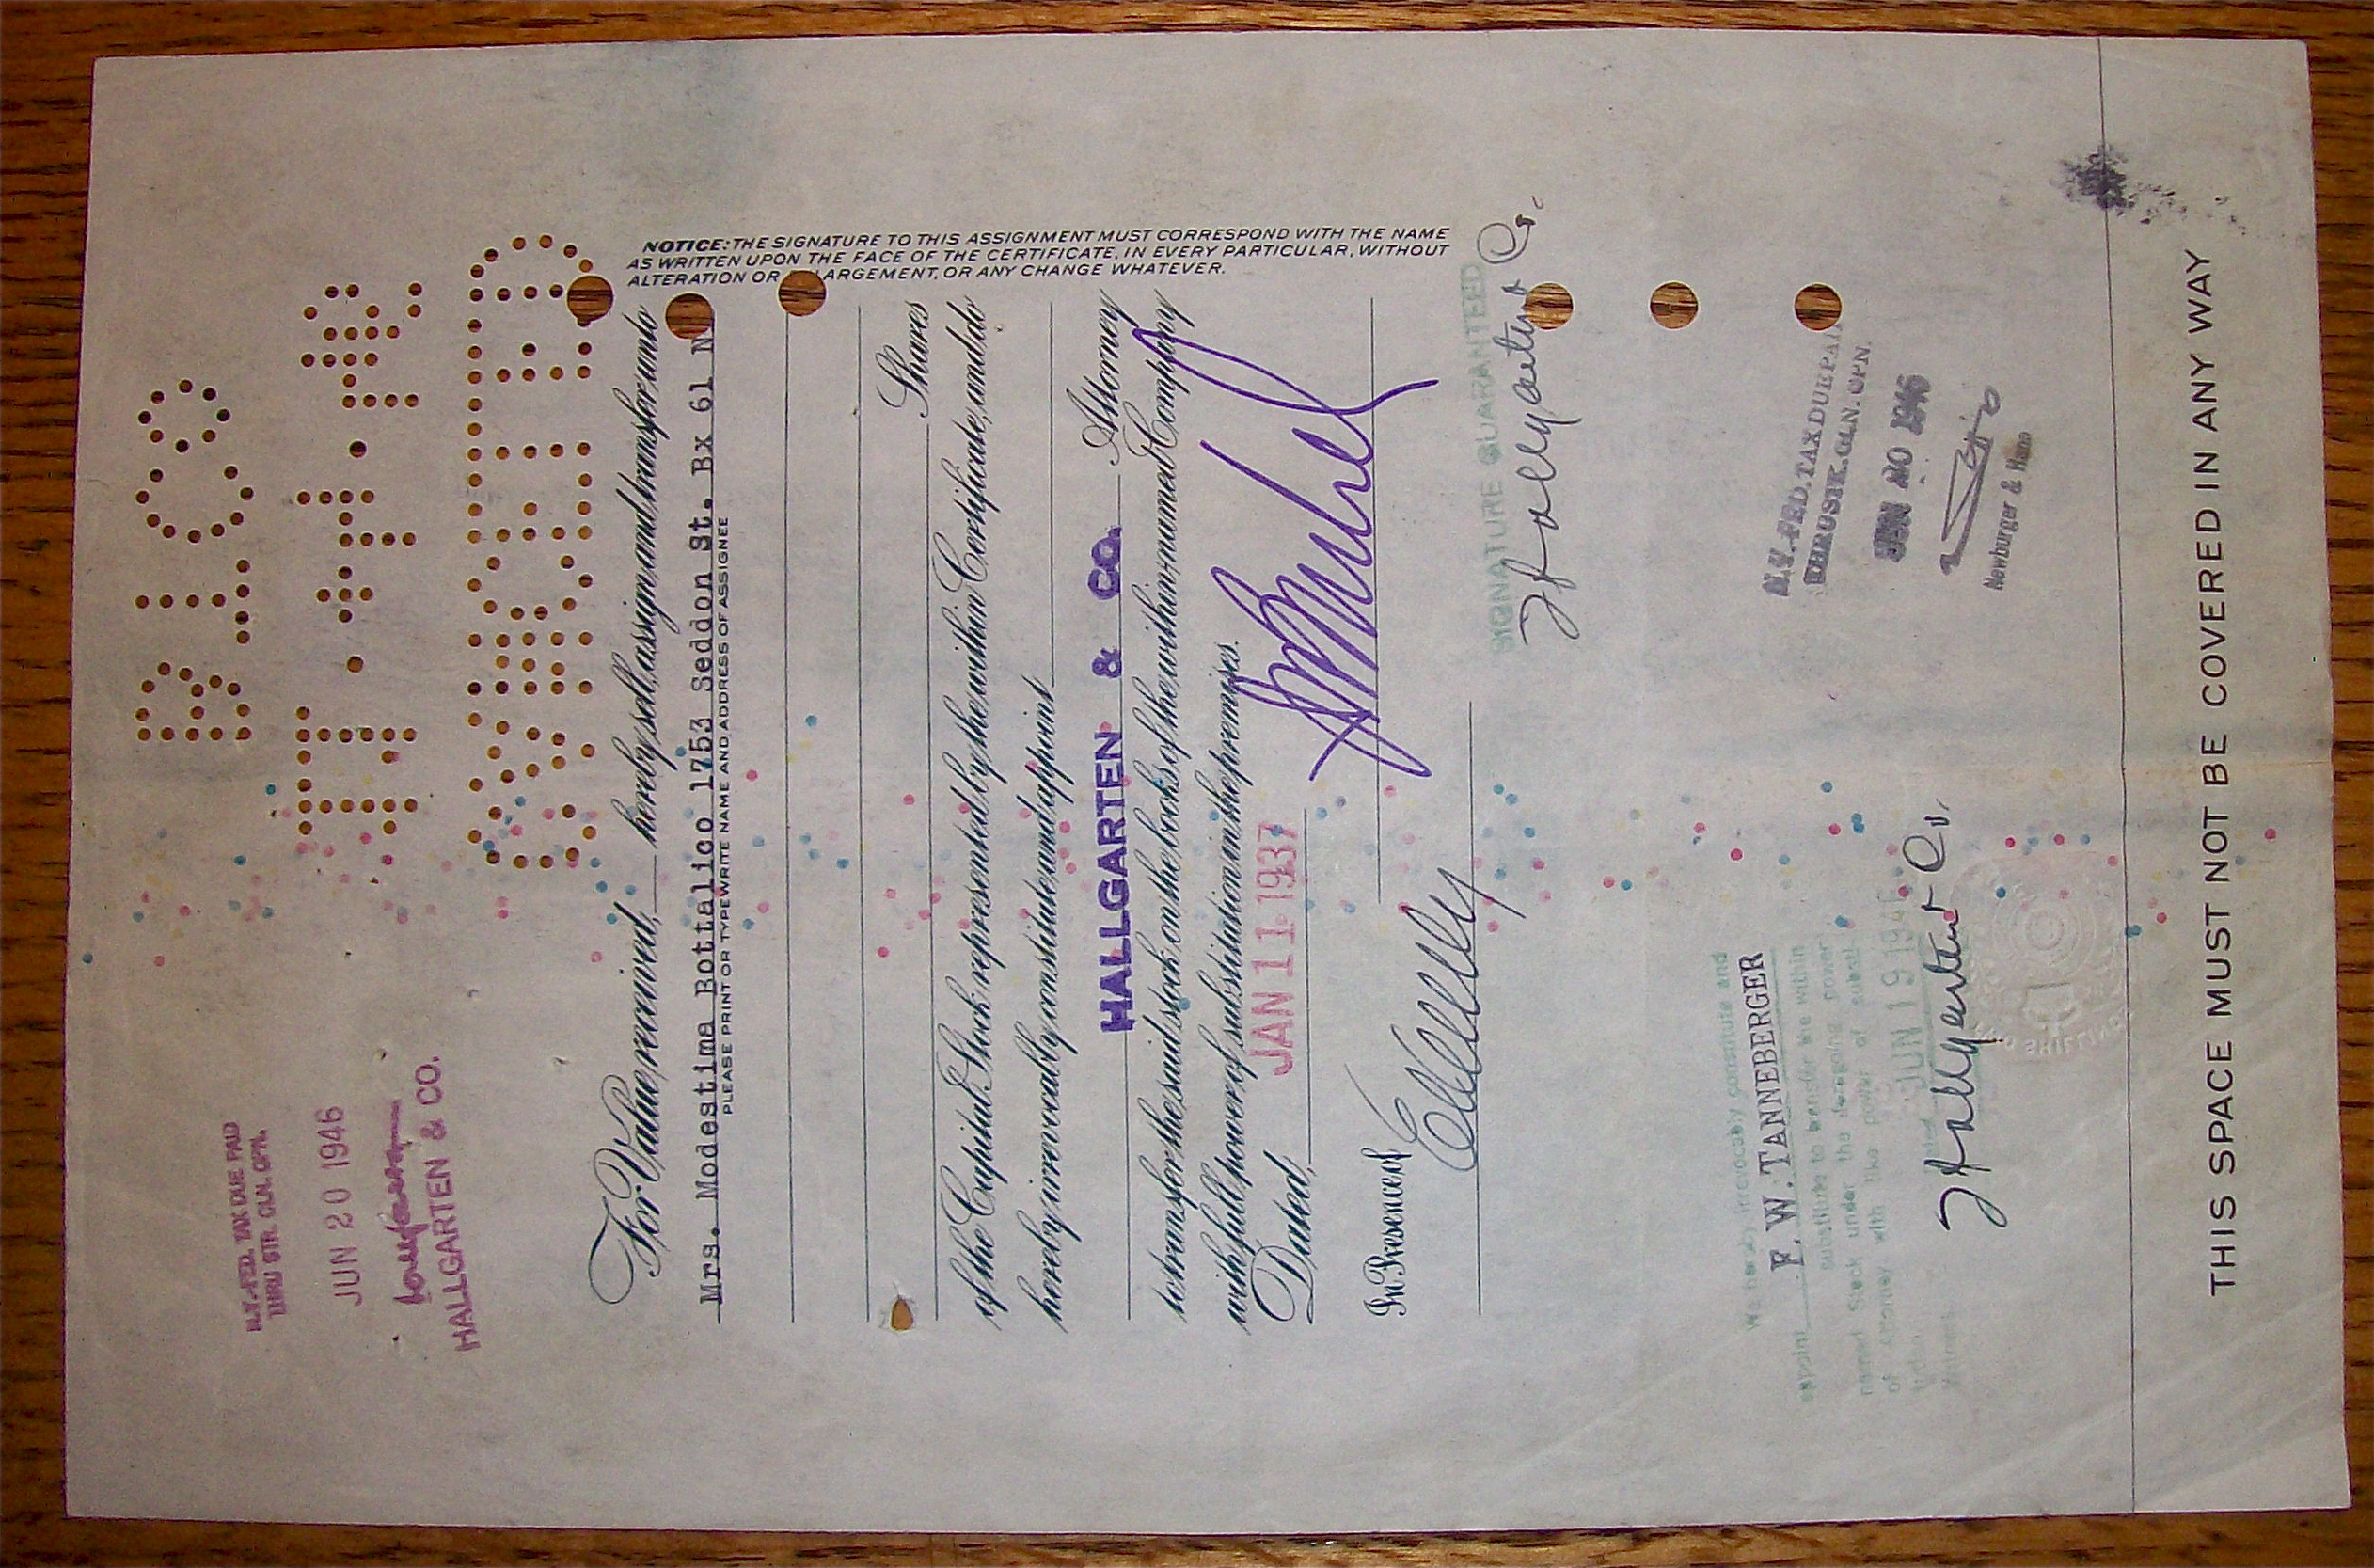 N.Y.-FED. TAX DUE PAID
THRU STK. CLN. CPN.
JUN 20 1946
HALLGARTEN & CO.
NOTICE: THE SIGNATURE TO THIS ASSIGNMENT MUST CORRESPOND WITH THE NAME
AS WRITTEN UPON THE FACE OF THE CERTIFICATE, IN EVERY PARTICULAR, WITHOUT
ALTERATION OR ENLARGEMENT, OR ANY CHANGE WHATEVER.
For Value received, hereby sell, assign and transfer unto
Mrs. Modestima Bottalico 1753 Seddon St. Bx 61 N
PLEASE PRINT OR TYPEWRITE NAME AND ADDRESS OF ASSIGNEE
Shares
of the Capital Stock represented by the within Certificate, and do
hereby irrevocably constitute and appoint
HALLGARTEN & CO. Attorney
to transfer the said stock on the books of the within named Company
with full power of substitution in the premises.
Dated, JAN 11 1937
In Presence of
SIGNATURE GUARANTEED
Hallgarten & Co.
N.Y.-FED. TAX DUE PAID
THRU STK. CLN. CPN.
JUN 20 1946
Newburger & Hano
We hereby irrevocably constitute and
appoint F. W. TANNEBERGER
substitute to transfer the within
named Stock under the foregoing power
of attorney with like power of
JUN 19 1946
Hallgarten & Co.
THIS SPACE MUST NOT BE COVERED IN ANY WAY